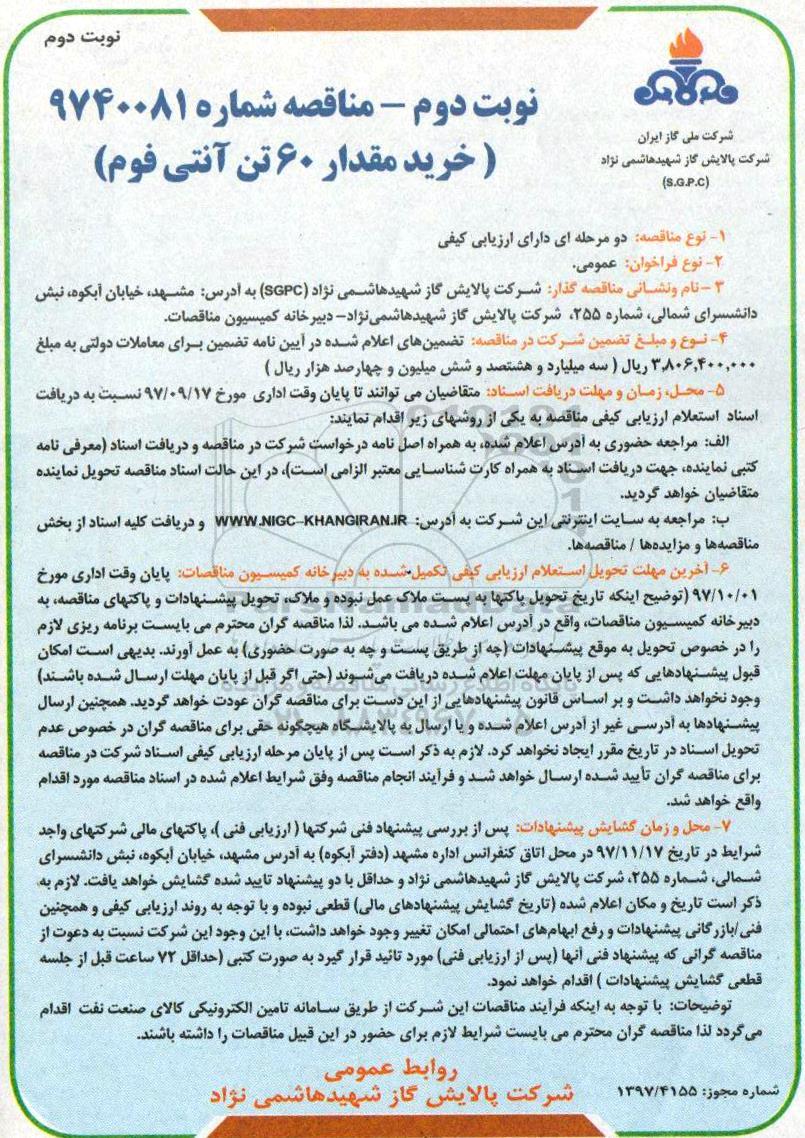 نوبت دوم
شرکت ملی گاز ایران
شرکت پالایش گاز شهیدهاشمی نژاد
(S.G.P.C)
نوبت دوم – مناقصه شماره ۹۷۴۰۰۸۱
( خرید مقدار ۶۰ تن آنتی فوم)
۱- نوع مناقصه: دو مرحله ای دارای ارزیابی کیفی
۲- نوع فراخوان: عمومی.
۳ –نام ونشانی مناقصه گذار: شرکت پالایش گاز شهیدهاشمی نژاد (SGPC) به آدرس: مشهد، خیابان آبکوه، نبش
دانشسرای شمالی، شماره ۲۵۵، شرکت پالایش گاز شهیدهاشمی‌نژاد– دبیرخانه کمیسیون مناقصات.
۴- نوع و مبلغ تضمین شرکت در مناقصه: تضمین‌های اعلام شده در آیین نامه تضمین برای معاملات دولتی به مبلغ
۳,۸۰۶,۴۰۰,۰۰۰ ریال ( سه میلیارد و هشتصد و شش میلیون و چهارصد هزار ریال )
۵- محل، زمان و مهلت دریافت اسناد: متقاضیان می توانند تا پایان وقت اداری مورخ ۹۷/۰۹/۱۷ نسبت به دریافت
اسناد استعلام ارزیابی کیفی مناقصه به یکی از روشهای زیر اقدام نمایند:
الف: مراجعه حضوری به آدرس اعلام شده، به همراه اصل نامه درخواست شرکت در مناقصه و دریافت اسناد (معرفی نامه
کتبی نماینده، جهت دریافت اسناد به همراه کارت شناسایی معتبر الزامی است)، در این حالت اسناد مناقصه تحویل نماینده
متقاضیان خواهد گردید.
ب: مراجعه به سایت اینترنتی این شرکت به آدرس: WWW.NIGC-KHANGIRAN.IR و دریافت کلیه اسناد از بخش
مناقصه‌ها و مزایده‌ها / مناقصه‌ها.
۶- آخرین مهلت تحویل استعلام ارزیابی کیفی تکمیل شده به دبیرخانه کمیسیون مناقصات: پایان وقت اداری مورخ
۹۷/۱۰/۰۱ (توضیح اینکه تاریخ تحویل پاکتها به پست ملاک عمل نبوده و ملاک، تحویل پیشنهادات و پاکتهای مناقصه، به
دبیرخانه کمیسیون مناقصات، واقع در آدرس اعلام شده می باشد. لذا مناقصه گران محترم می بایست برنامه ریزی لازم
را در خصوص تحویل به موقع پیشنهادات (چه از طریق پست و چه به صورت حضوری) به عمل آورند. بدیهی است امکان
قبول پیشنهادهایی که پس از پایان مهلت اعلام شده دریافت می‌شوند (حتی اگر قبل از پایان مهلت ارسال شده باشند)
وجود نخواهد داشت و بر اساس قانون پیشنهادهایی از این دست برای مناقصه گران عودت خواهد گردید. همچنین ارسال
پیشنهادها به آدرسی غیر از آدرس اعلام شده و یا ارسال به پالایشگاه هیچگونه حقی برای مناقصه گران در خصوص عدم
تحویل اسناد در تاریخ مقرر ایجاد نخواهد کرد. لازم به ذکر است پس از پایان مرحله ارزیابی کیفی اسناد شرکت در مناقصه
برای مناقصه گران تأیید شده ارسال خواهد شد و فرآیند انجام مناقصه وفق شرایط اعلام شده در اسناد مناقصه مورد اقدام
واقع خواهد شد.
۷- محل و زمان گشایش پیشنهادات: پس از بررسی پیشنهاد فنی شرکتها ( ارزیابی فنی )، پاکتهای مالی شرکتهای واجد
شرایط در تاریخ ۹۷/۱۱/۱۷ در محل اتاق کنفرانس اداره مشهد (دفتر آبکوه) به آدرس مشهد، خیابان آبکوه، نبش دانشسرای
شمالی، شماره ۲۵۵، شرکت پالایش گاز شهیدهاشمی نژاد و حداقل با دو پیشنهاد تایید شده گشایش خواهد یافت. لازم به
ذکر است تاریخ و مکان اعلام شده (تاریخ گشایش پیشنهادهای مالی) قطعی نبوده و با توجه به روند ارزیابی کیفی و همچنین
فنی/بازرگانی پیشنهادات و رفع ابهام‌های احتمالی امکان تغییر وجود خواهد داشت، با این وجود این شرکت نسبت به دعوت از
مناقصه گرانی که پیشنهاد فنی آنها (پس از ارزیابی فنی) مورد تائید قرار گیرد به صورت کتبی (حداقل ۷۲ ساعت قبل از جلسه
قطعی گشایش پیشنهادات ) اقدام خواهد نمود.
توضیحات: با توجه به اینکه فرآیند مناقصات این شرکت از طریق سامانه تامین الکترونیکی کالای صنعت نفت اقدام
می‌گردد لذا مناقصه گران محترم می بایست شرایط لازم برای حضور در این قبیل مناقصات را داشته باشند.
روابط عمومی
شرکت پالایش گاز شهیدهاشمی نژاد
شماره مجوز: ۱۳۹۷/۴۱۵۵